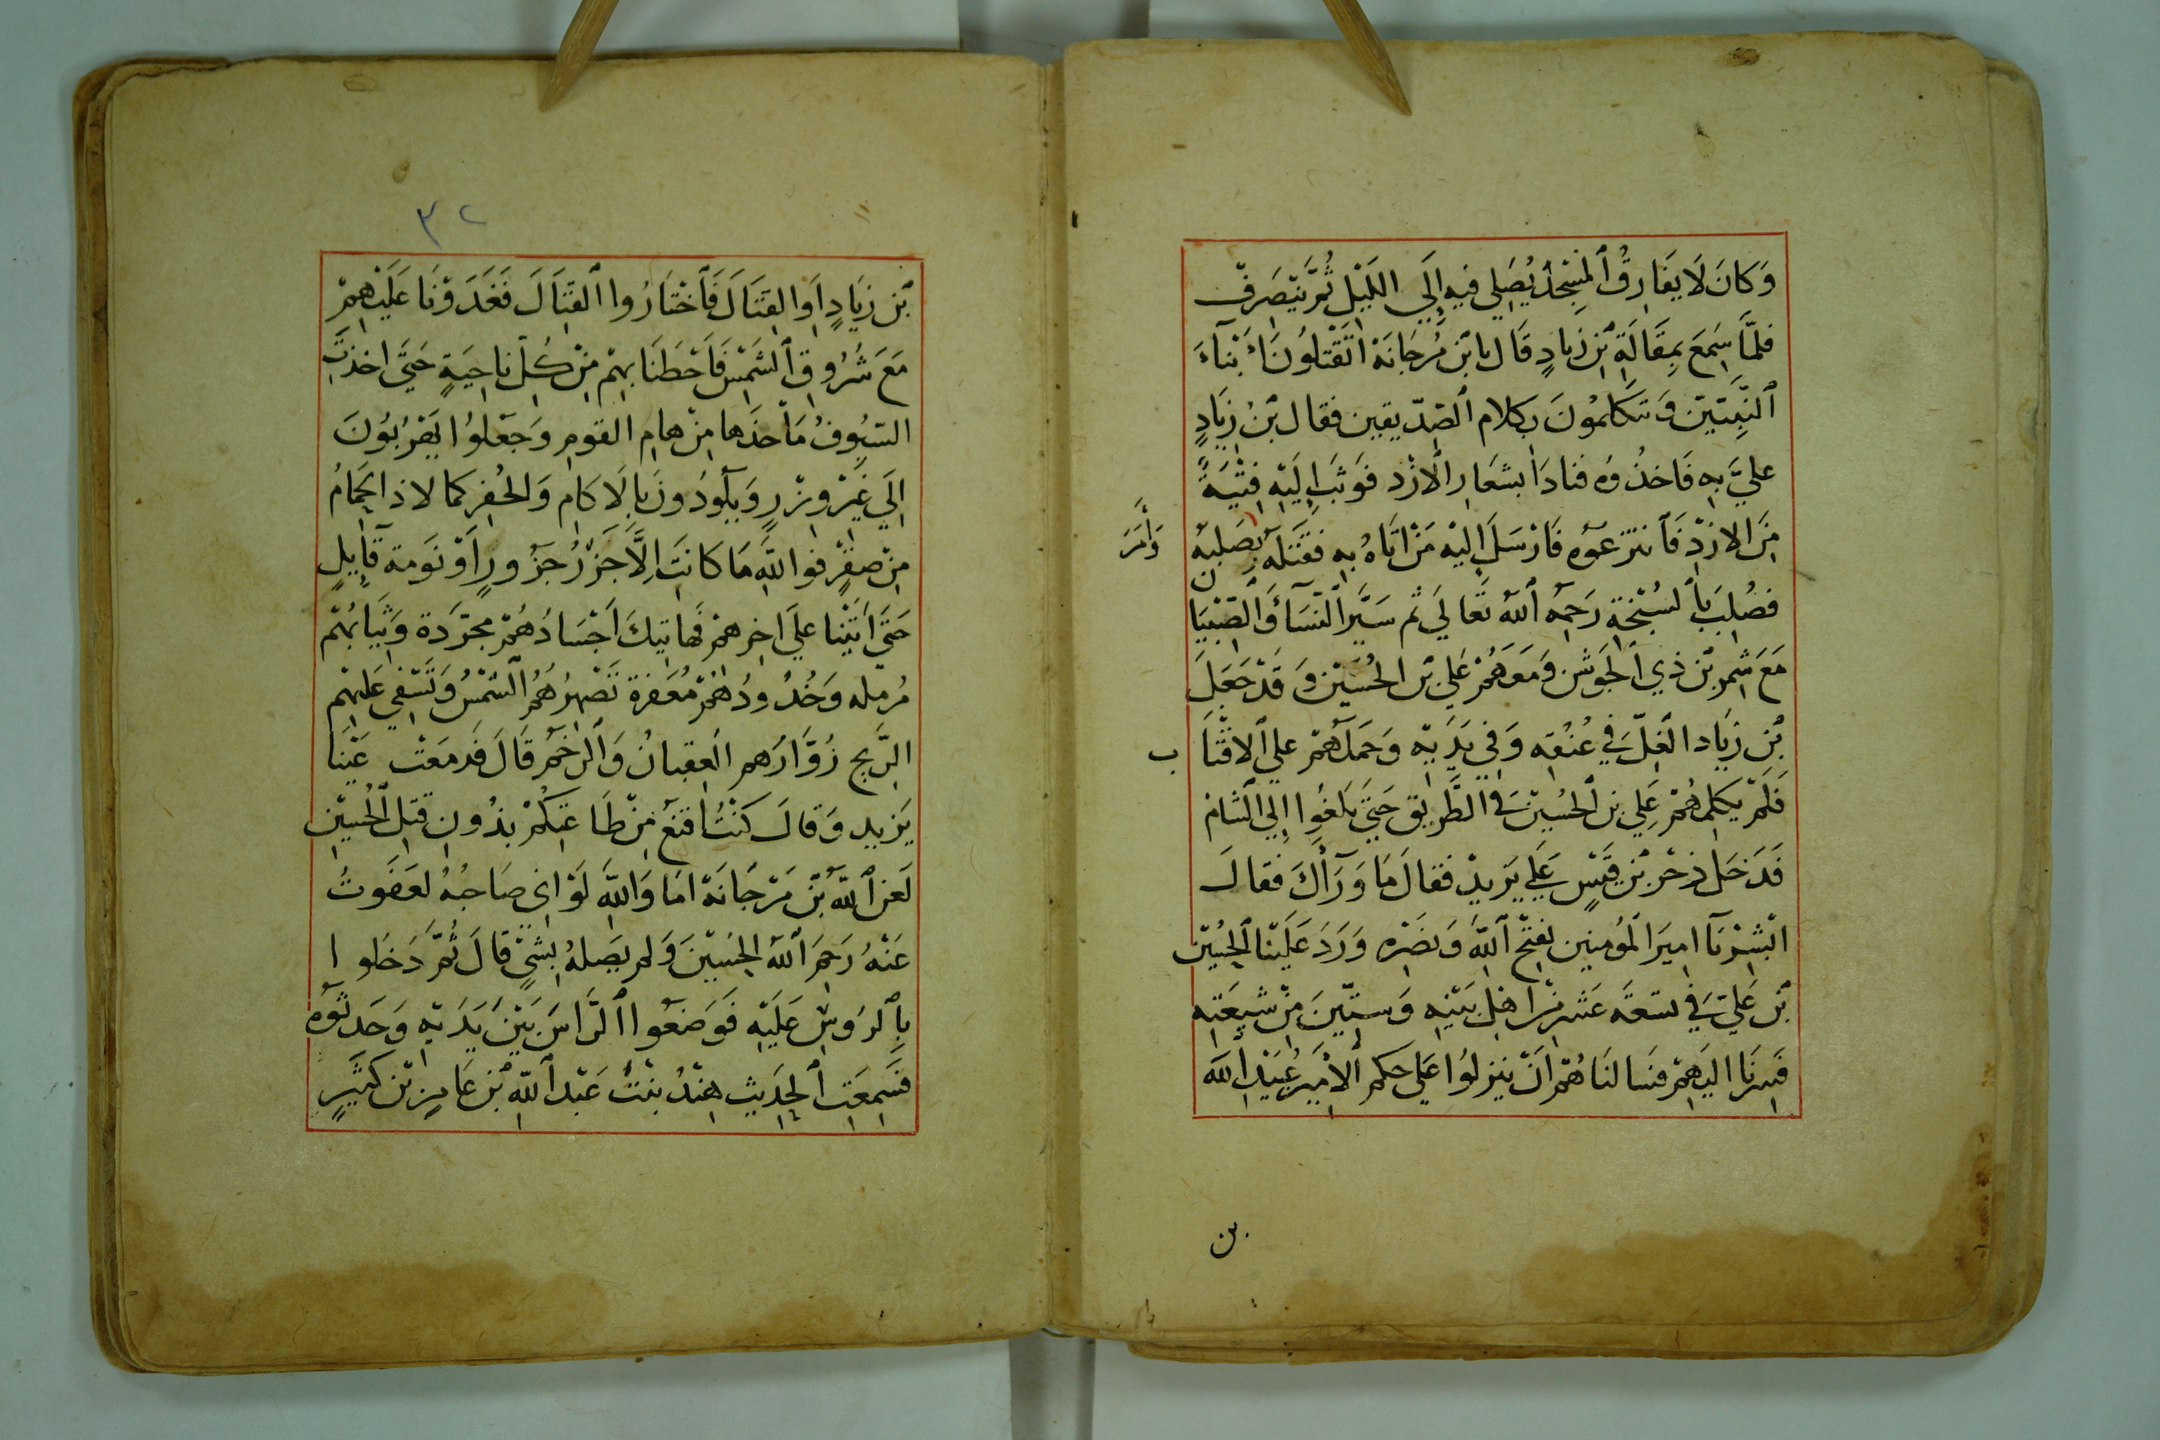 وَكَانَ لَا يفَارِقُ ٱلمَسْجِدَ يُصَلِي فيهِ إِلَي اللَيْلِ ثُمَّ يَنْصَرِفْ
فلمَّا سِمَعَ بِمقَالَةِ بْنِ زيادٍ قَال يا بْن مُرجَانَة اتَقْتلُونَ اَبْنآءَ
ٱلنَّبِيّيْن وَتتَكلمُونَ بكلام ٱلصِّدّيقين فقال بْنُ زيَادٍ
عليَّ بهِ فَاخذُوه فنادَا بشعَارِ الأَزْد فوَثبَ إِلَيْهِ فِتْيَةٌ
مِنَ الازدِ فَٱنتزعَوُه فَارْسَلَ اِليْهِ مَنْ اتَاهُ بهِ فقَتَلَهُ بصَلبِهِ
وَأَمَرَ
فصُلِبَ بٱلسُبْخَةِ رَحِمَه ٱللهُ تعَالَي ثم سَيَّرَ ٱلنّسَآءَ وَٱلصّبْيَا
ن
مَعَ شِمرِ بْن ذي ٱلجَوشَن وَمعَهمُرْ عَلي بْن الحُسَيْن وَقَدْ جَعَلَ
بْن زيَاد الغلّ في عُنُقه وَفي يدَيْه وَحَملَهمْ علي ٱلاقْتَا
ب
فَلَمْ يكلِمهُمْ عَلِي بن ٱلحُسَيْن في ٱلطَّريق حَتيَ بَلغوُا إِلي الشام
فَدَخَل زحْر بْن قيْسٍ عَلَي يَزيدْ فقالَ مَا وَرَآكَ فقالَ
ابْشرْ يَآ اميرَ الْمُومنِين بفتْح ٱللهِ وَنصَرْه وَرَدَ عَليَنا ٱلحُسَيْن
بْن عَليّ في تسعَة عَشر مِنْ اهْل بَيْتِهِ وَستِيّنَ مِنْ شيعَتِهِ
فَسِرنَا اليَهِمْ فسَالنَاهُمْ اَنْ ينزلوُا عَلي حكم ٱلأَميْرِ عُبَيْدِ اللهِ
بن
٣٢
بْن زيَادٍ اَو القتَالَ فَٱختَارُوا ٱلقتَالَ فَغَدَوْنَا عَلَيْهِمْ
مَعَ شرُوقِ ٱلشَمْسِ فَاَحَطنَا بهِمْ مِنْ كُلّ ناحِيَةٍ حَتيَّ اخذتِ
السّيُوفُ مَاْخذَها مِنْ هامِ القومِ وَجَعَلوُا يَهْرُبُونَ
اِلَي غَيْرِ وزْرٍ وَيلوُدُونَ بالَاكامِ وَالحُفرِ كما لاذ الحَمامُ
مِنْ صقْرٍ فو اللهِ مَا كانَت اِلَّا جَزْرُ جَزُورٍ اَوْ نَومة قآيلٍ
حَتيَ اَتيْنا علَي اخرِهمْ فهاتيكَ اَجْسَادُهمُرْ مجرّدَة وَثيَابُهُمْ
مُرمله وَخُدُودُهمُرْ مُعَفرة تَصْهرُهُمُ ٱلشمْسُ وَتَسْفي عَليهْم
الرّيح زُوَّارُهم العِقبانُ وَٱلرَّخمُ قَالَ فَدمَعَتْ عَيْنَا
يَزيد وَقالَ كنتُ اقنعُ مِنْ طَاعَتِكمُرْ بدُونِ قتل ٱلحُسيْنِ
لَعنَ ٱللهُ بْن مَرْجَانَة امَا وَاللهِ لوْ اني صَاحبُهُ لعَفَوتُ
عَنهُ رَحِمَ ٱللهُ الحُسيْنَ وَلم يصَلهُ بشيْءٍ قالَ ثُمَّ دَخَلوا
بٱلرؤسِ عَلَيْهِ فَوضعَوُا ٱلرَّاسَ بَيْنَ يَدَيْهِ وَحَدثوُه
فَسَمِعَتِ ٱلحدَيثِ هِندُ بنْتُ عَبْد ٱللهِ بْن عَامِرِ بْن كثيرٍ